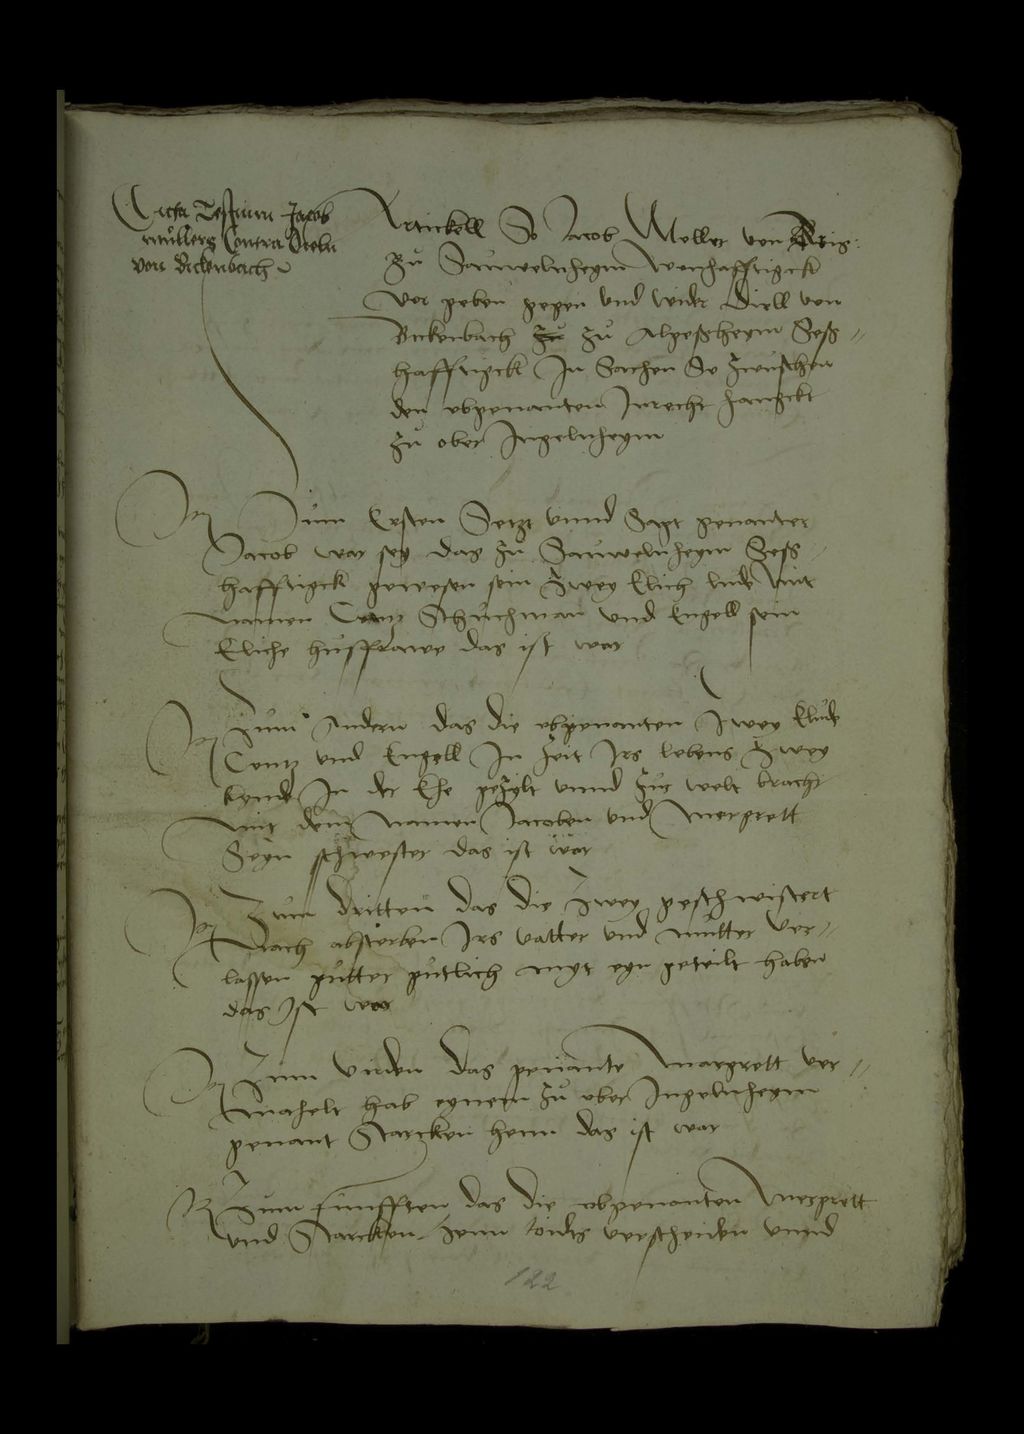 Dicta Testium Jacob
mullers Contra Dieln
von Bickenbach
Artickell So Jacob Moller von
zu Sauwelnheym wonhafftigck
vor geben gegen vnd wider Diell von
Bickenbach zu zu Algeßheym Seß
hafftigck In Sachen So zwuschen
den obgenanten Inrecht hanckt
zu ober Ingelnheym
Item Zum Ersten Setzt vnnd Sagt genanter
Jacob war sey das zu Sauwelnheym Seß
hafftigck gewesen sein zwey Elich lude mit
namen Contz Schuchman vnd Engell sein
Eliche hussfrawe das ist war
Item Zum Andern das die obgenanten Zwey Elude
Contz vnd Engell In Zeit Irs lebens Zwey
kynde In der Ehe gezylt vnnd zur welt bracht
mit dem namen Jacoben vnd mergrett
Seyn schwester das ist war
Item Zum dritten das die Zwey geschwistert
Nach absterben Irs vatter vnd mutter ver
lassen gutter gutlich myt eyn geteilt haben
das Ist war
Item Zum virden das genante Margrett ver
mahelt hab eynem zu ober Ingelnheym
genant Starcken henn das ist war
Item Zum funfften das die obgenanten Mergrett
vnd Starcken henn toidts verscheiden vnnd
122